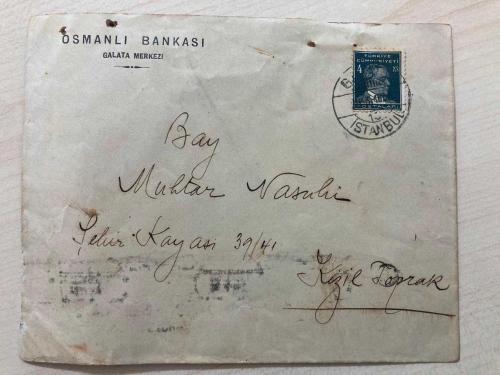 OSMANLI BANKASI
GALATA MERKEZİ
TÜRKİYE
CÜMHURİYETİ
4 KS
POSTALARI
İSTANBUL
Bay
Muhtar Nasuhi
Şehir Kayası 39/41
Kızıl Toprak